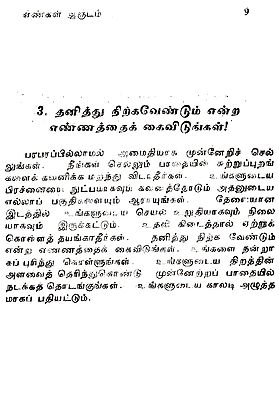 எண்கள் ஆரூடம்
9
3. தனித்து நிற்கவேண்டும் என்ற
எண்ணத்தைக் கைவிடுங்கள்!
பரபரப்பில்லாமல் அமைதியாக முன்னேறிச் செல்
லுங்கள். நீங்கள் செல்லும் பாதையின் சுற்றுப்புறங்
களைக் கவனிக்க மறந்து விடாதீர்கள். உங்களுடைய
பிரச்னையை நுட்பமாகவும் கவனத்தோடும் அதனுடைய
எல்லாப் பகுதிகளையும் ஆராயுங்கள். தேவையான
இடத்தில் உங்களுடைய செயல் உறுதியாகவும் நிலை
யாகவும் இருக்கட்டும். உதவி கிடைத்தால் ஏற்றுக்
கொள்ளத் தயங்காதீர்கள். தனித்து நிற்க வேண்டும்
என்ற எண்ணத்தைக் கைவிடுங்கள். உங்களை நன்றா
கப் புரிந்து கொள்ளுங்கள். உங்களுடைய திறத்தின்
அளவைத் தெரிந்துகொண்டு முன்னேற்றப் பாதையில்
நடக்கத் தொடங்குங்கள். உங்களுடைய காலடி அழுத்த
மாகப் பதியட்டும்.